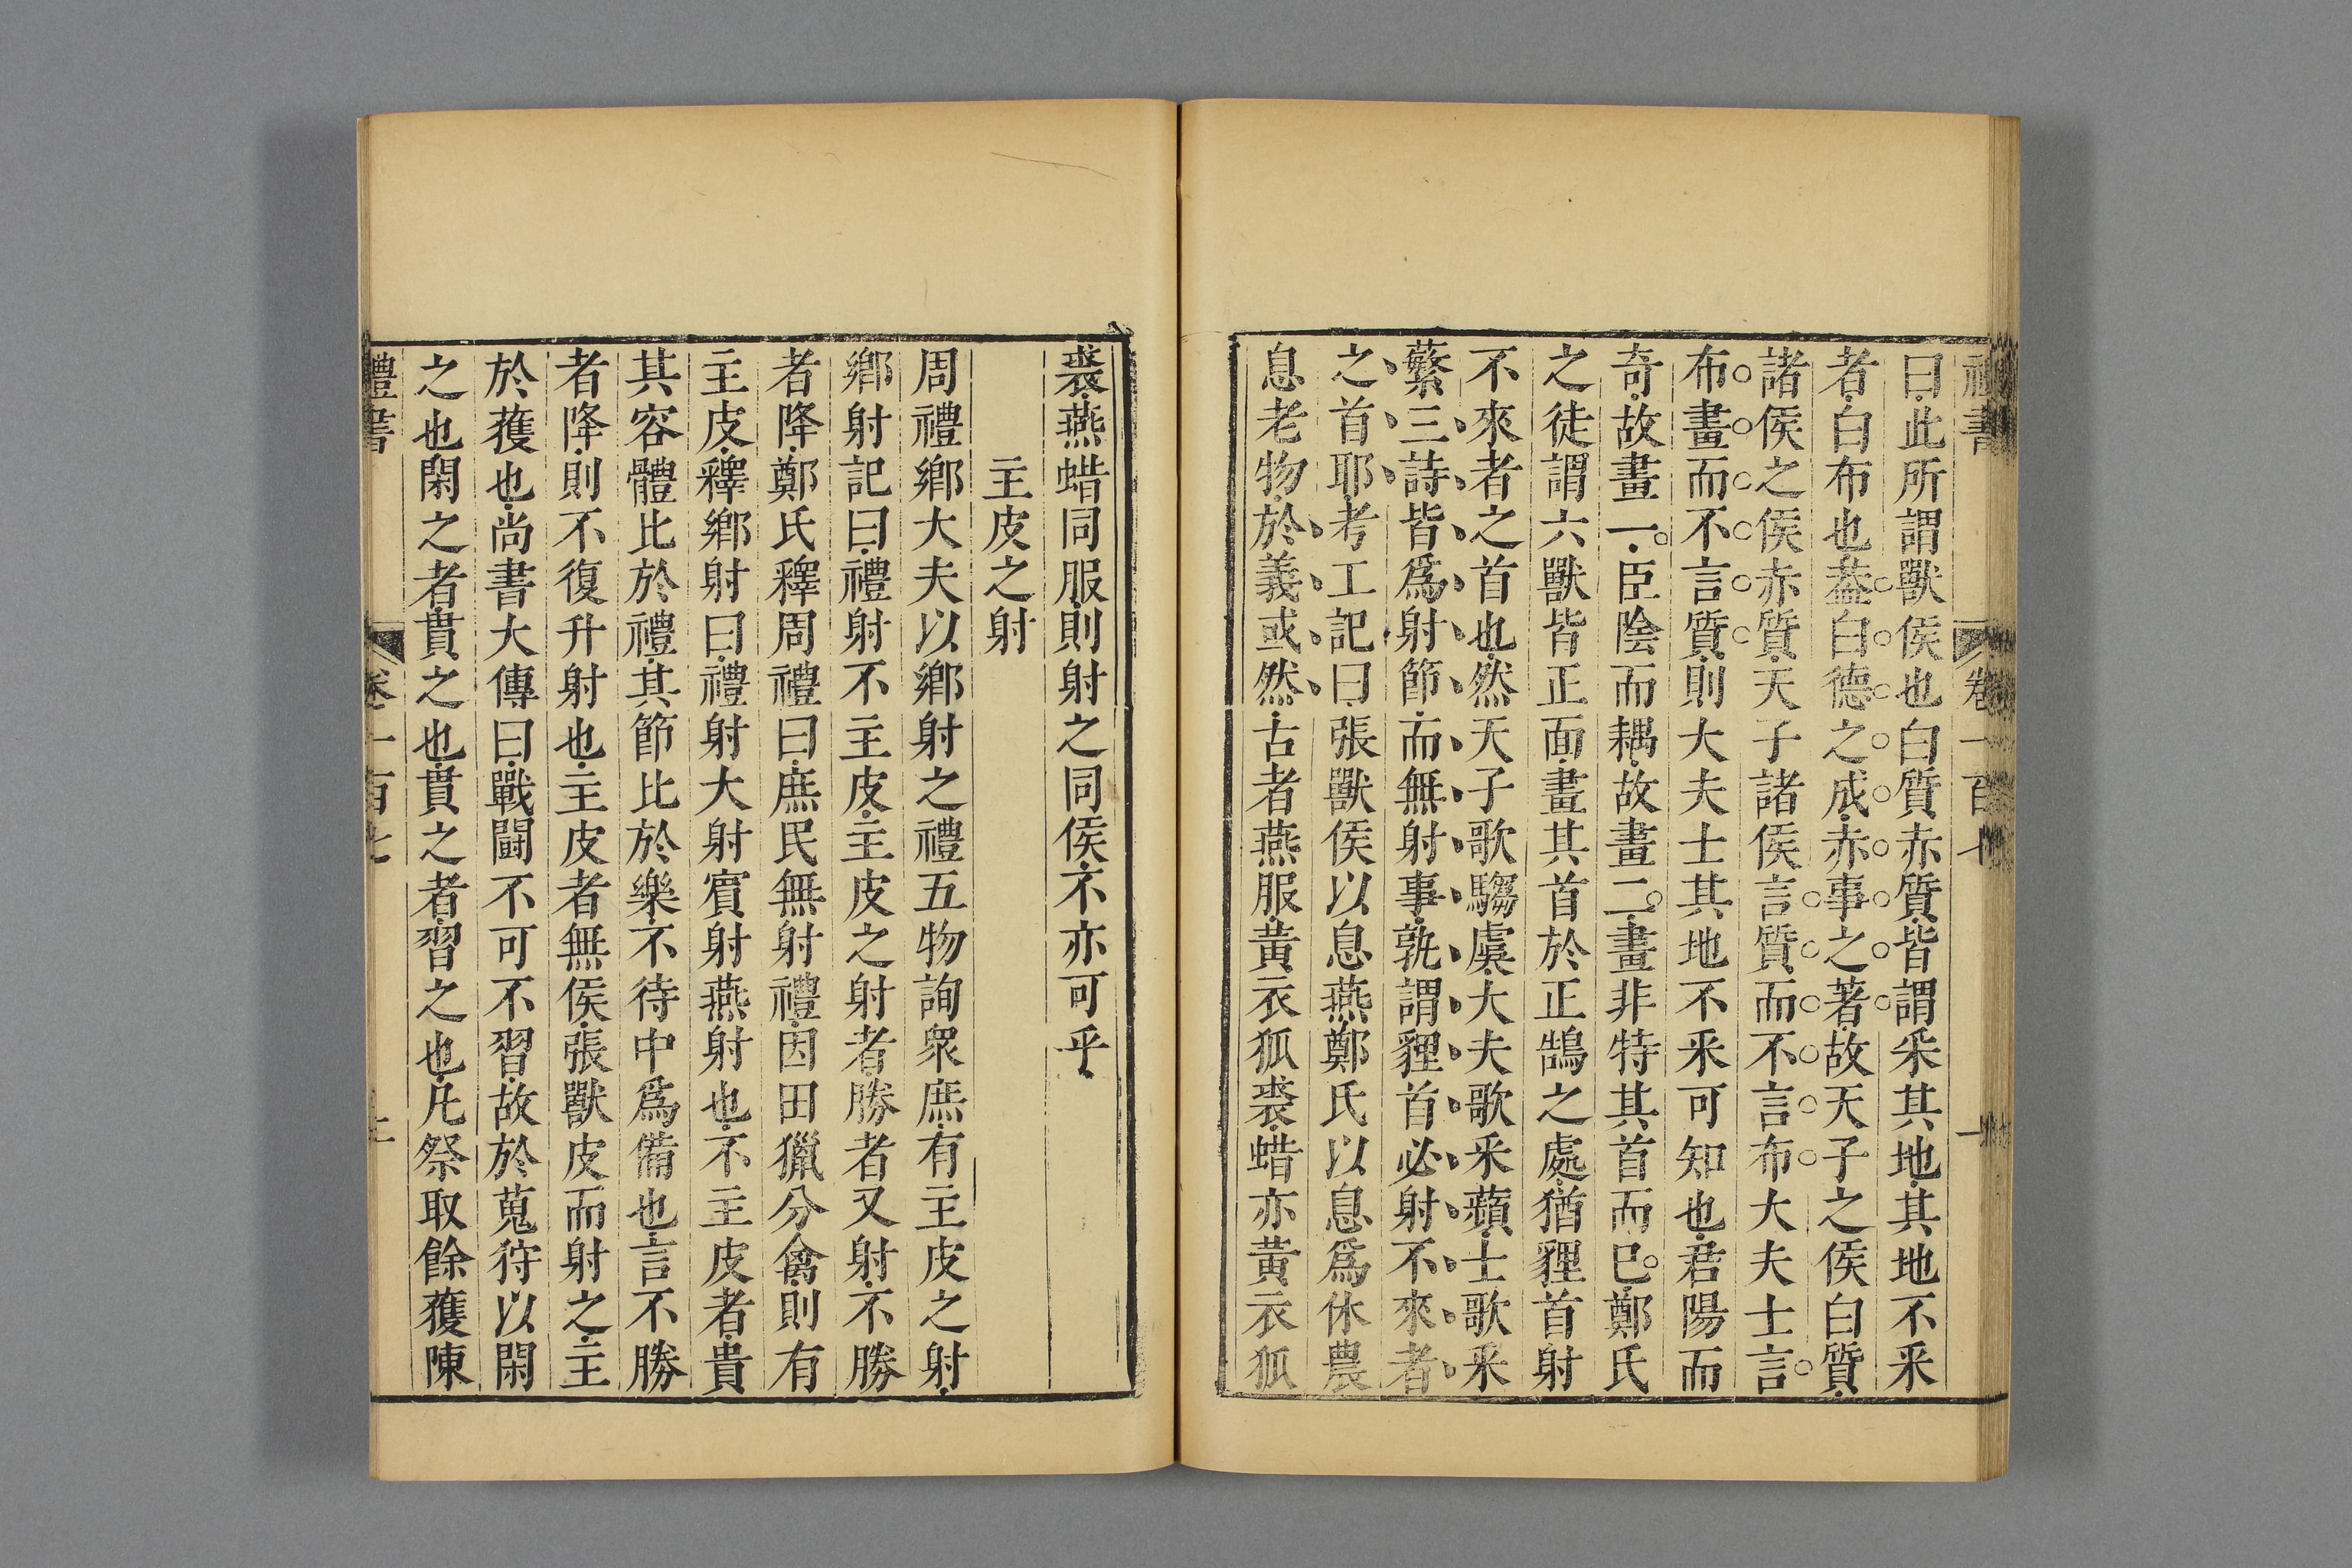 禮書 卷一百七
曰此所謂獸侯也白質赤質皆謂采其地其地不采
者白布也葢白德之成赤事之著故天子之侯白質
諸侯之侯赤質天子諸侯言質而不言布大夫士言
布畫而不言質則大夫士其地不采可知也君陽而
奇故畫一臣陰而耦故畫二畫非特其首而已鄭氏
之徒謂六獸皆正面畫其首於正鵠之處猶貍首射
不來者之首也然天子歌騶虞大夫歌采蘋士歌采
蘩三詩皆爲射節而無射事孰謂貍首必射不來者
之首耶考工記曰張獸侯以息燕鄭氏以息爲休農
息老物於義或然古者燕服黃衣狐裘蜡亦黃衣狐
裘燕蜡同服則射之同侯不亦可乎
主皮之射
周禮鄉大夫以鄉射之禮五物詢衆庶有主皮之射
鄉射記曰禮射不主皮主皮之射者勝者又射不勝
者降鄭氏釋周禮曰庶民無射禮因田獵分禽則有
主皮釋鄉射曰禮射大射賓射燕射也不主皮者貴
其容體比於禮其節比於樂不待中爲備也言不勝
者降則不復升射也主皮者無侯張獸皮而射之主
於蒦也尚書大傳曰戰鬪不可不習故於蒐狩以閑
之也閑之者貫之也貫之者習之也凡祭取餘獲陳
禮書 卷一百七